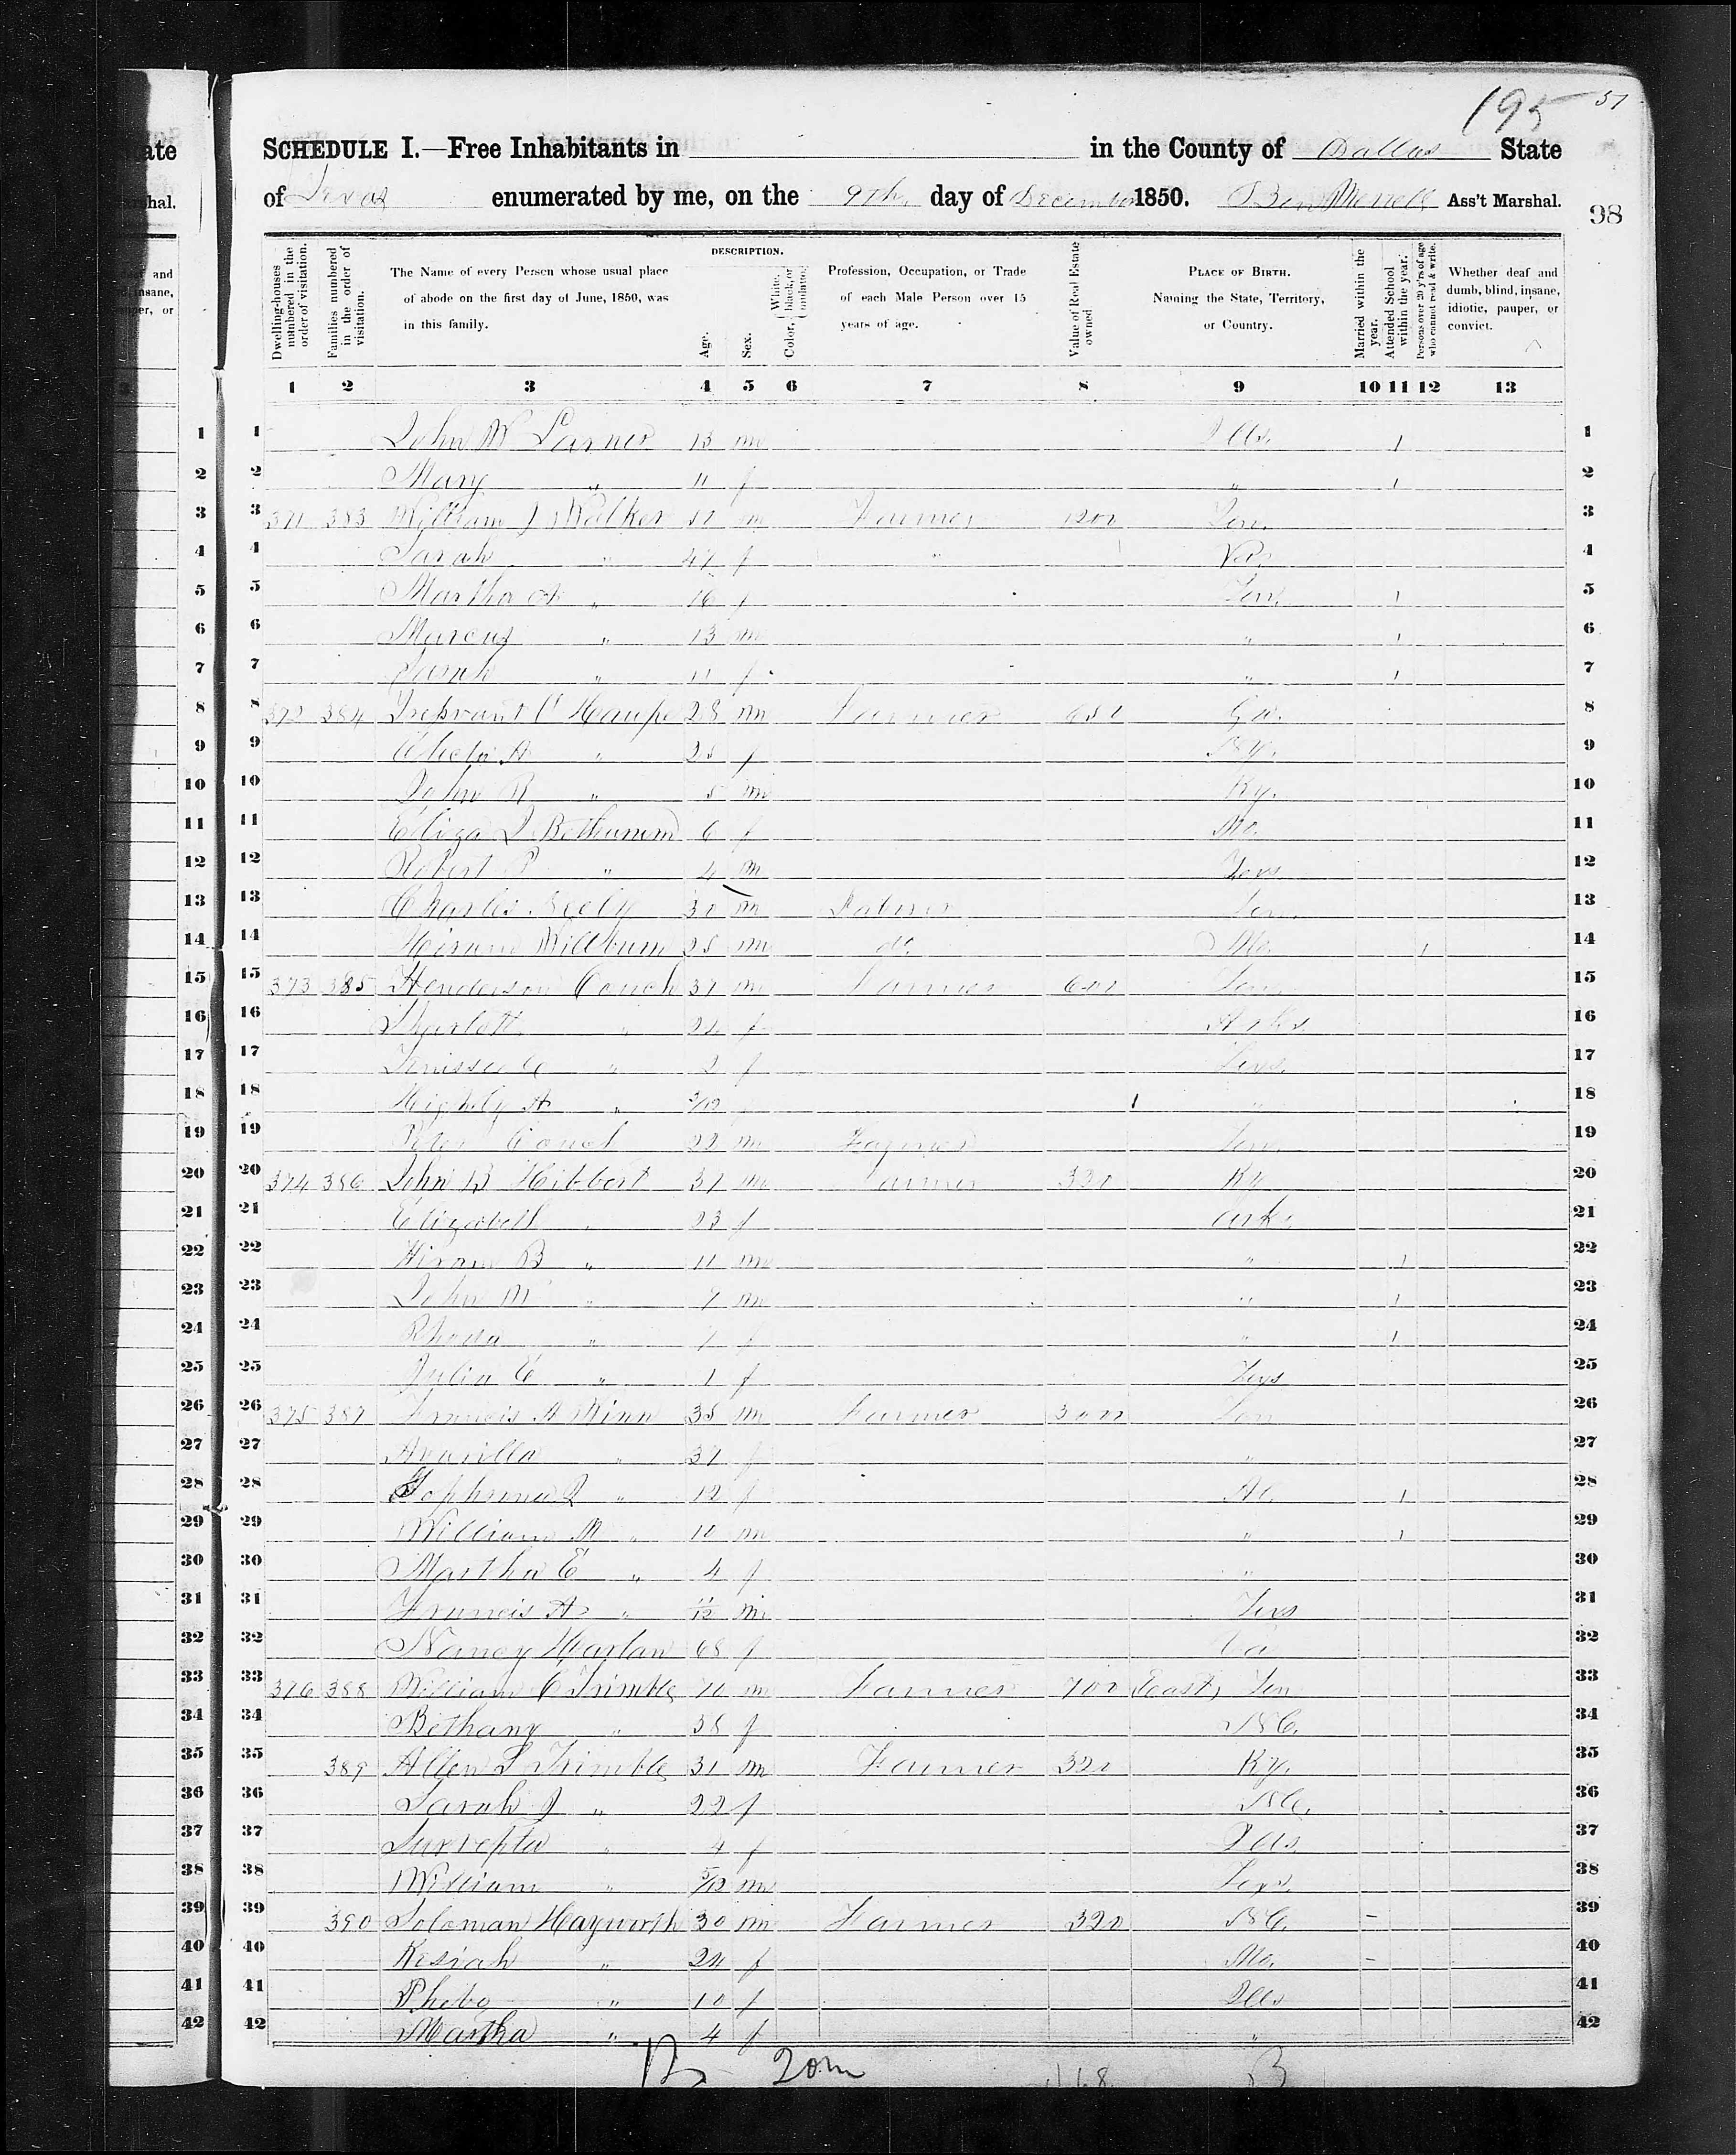 195 57
SCHEDULE I.—Free Inhabitants in in the County of Dallas State
of Texas enumerated by me, on the 9th day of December 1850. Ben Merrell Ass't Marshal.
98
Dwelling-houses numbered in the order of visitation.
Families numbered in the order of visitation.
The Name of every Person whose usual place of abode on the first day of June, 1850, was in this family.
DESCRIPTION.
Age.
Sex.
Color, White, black, or mulatto.
Profession, Occupation, or Trade of each Male Person over 15 years of age.
Value of Real Estate owned
PLACE OF BIRTH. Naming the State, Territory, or Country.
Married within the year.
Attended School within the year.
Persons over 20 y'rs of age who cannot read & write.
Whether deaf and dumb, blind, insane, idiotic, pauper, or convict.
1 2 3 4 5 6 7 8 9 10 11 12 13
1 John W 13 m Ills. 1 1
2 Mary " 11 f " 1 2
3 371 383 William J Walker m Farmer 1200 Ten. 3
4 Sarah " 47 f " Va. 4
5 Martha A " 16 f Ten. 1 5
6 Marcus " 13 m " 1 6
7 Sarah " 11 f " 1 7
8 372 384 28 m Farmer Ga. 8
9 A " 25 f 9
10 John R " 5 m Ky. 10
11 Eliza J 6 f Mo. 11
12 Robert P " 4 m Texs. 12
13 Charles Neely 30 m Laborer Ten. 13
14 Hiram Willburn 25 m do. Mo. 1 14
15 373 385 Henderson Couch 31 m Farmer 600 Ten. 15
16 Sharlott " 22 f Arks. 16
17 " 2 f Texs. 17
18 A " " 18
19 Peter Couch 22 m Farmer Ten. 19
20 374 386 John B Hibbert 37 m Farmer 320 Ky 20
21 Elizabeth " 23 f Ark. 21
22 Hiram B " 11 m " 1 22
23 John M " 9 m " 1 23
24 Rhoda " 7 f " 1 24
25 Julia E " 1 f Texs 25
26 375 387 Francis A Winn 35 m Farmer Ten 26
27 Avarilla " 37 f " 27
28 J " 12 f Al. 1 28
29 William M " 10 m " 1 29
30 Martha E " 4 f " 30
31 Francis A " 11/12 m Texs 31
32 Nancy Harlan 68 f 32
33 376 388 William C Trimble 70 m Farmer 700 (East) Ten 33
34 Bethany " 38 f NC. 34
35 389 Allen S Trimble 31 m Farmer 320 Ky. 35
36 Sarah J " 22 f NC. 36
37 Surrepta " 4 f Ills. 37
38 William " 5/12 m Texs. 38
39 390 Soloman Hayworth 30 m Farmer 320 NC. – 39
40 Kesiah " 24 f Mo. – 40
41 Phebe " 10 f Ills 41
42 Martha " 4 f " 42
20m